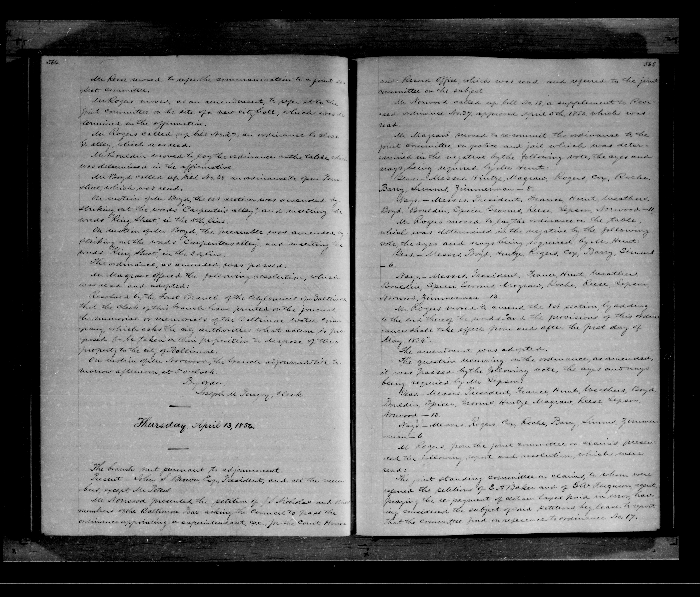 Mr Kerr moved to refer the communication to a joint se-
lect committee.
Mr Rogers moved, as an amendment, to refer it to the
joint committee on the site of a new city hall, which was de-
termined in the affirmative.
Mr Rogers called up bill No 27, an ordinance to close
alley, which was read.
Mr Boulden moved to lay the ordinance on the table, which
was determined in the affirmative.
Mr Boyd called up bill No 28 an ordinance to open
which was read.
On motion of Mr Boyd, the 1st section was amended by
striking out the words "Carpenter's alley" and inserting the
words "King Street" in the 6th line.
On motion of Mr Boyd, the preamble was amended by
striking out the words "Carpenter's alley" and inserting the
words "King Street" in the 3rd line.
The ordinance, as amended, was passed.
Mr Magraw offered the following resolution, which
was read and adopted:
Resolved by the First Branch of the City Council of Baltimore
that the Clerk of this Branch have printed on the journal
the memorial of the Baltimore Water Com-
pany, which asks the city authorities what action is pro-
posed to be taken on their proposition to dispose of their
property to the city of Baltimore.
On motion of Mr Norwood, the branch adjourned till to-
morrow afternoon at 5 o'clock.
By order,
Joseph H. Clerk
Thursday, April 13, 1854.
The branch met pursuant to adjournment
Present John T. Brown Esq, President, and all the mem-
bers, except Mr
Mr Norwood presented the petition of and other
members of the Baltimore Bar asking the Council to pass the
ordinance appointing a superintendent, &c. for the Court House
365
and Record Office which was read and referred to the joint
committee on the subject.
Mr Norwood called up bill No 18, a supplement to Revi-
sed ordinance No 27, approved April 6th, 1850, which was
read.
Mr Magraw moved to recommit the ordinance to the
joint committee on police and jail which was deter-
mined in the negative by the following vote, the ayes and
nays, being required by Mr Hunt.
Yeas - Messrs. Hintze, Magraw, Rogers, Coy, Roche,
Barry, Simms, Zimmerman - 8.
Nays - Messrs. President, France, Hunt,
Boyd, Boulden, Spicer, Reese, Norwood - 11
Mr Rogers moved to lay the ordinance on the table,
which was determined in the negative by the following
vote, the ayes and nays being required by Mr Hunt.
Yeas - Messrs. Boyd, Hintze, Rogers, Coy, Barry, Simms
- 6
Nays - Messrs. President, France, Hunt,
Boulden, Spicer, Magraw, Roche, Reese,
Norwood, Zimmerman - 13.
Mr Rogers moved to amend the 1st section by adding
to the end thereof the words "and the provisions of this ordin-
ance shall take effect from and after the first day of
May 1854".
The amendment was adopted.
The question recurring on the ordinance, as amended,
it was passed by the following vote, the ayes and nays
being required by Mr
Yeas - Messrs. President, France, Hunt, Boyd,
Boulden, Spicer, Hintze, Magraw, Reese,
Norwood - 13.
Nays - Messrs. Rogers, Coy, Roche, Barry, Simms, Zimmer-
man - 6
Mr Rogers, from the joint committee on claims presen-
ted the following report and resolution, which were
read:
The joint standing committee on claims, to whom were
referred the petitions of E A Baker and of Ferguson, agent,
praying the re-payment of certain taxes paid in error, hav-
ing considered the subject of said petitions beg leave to report
that the committee find on reference to ordinance No 17,